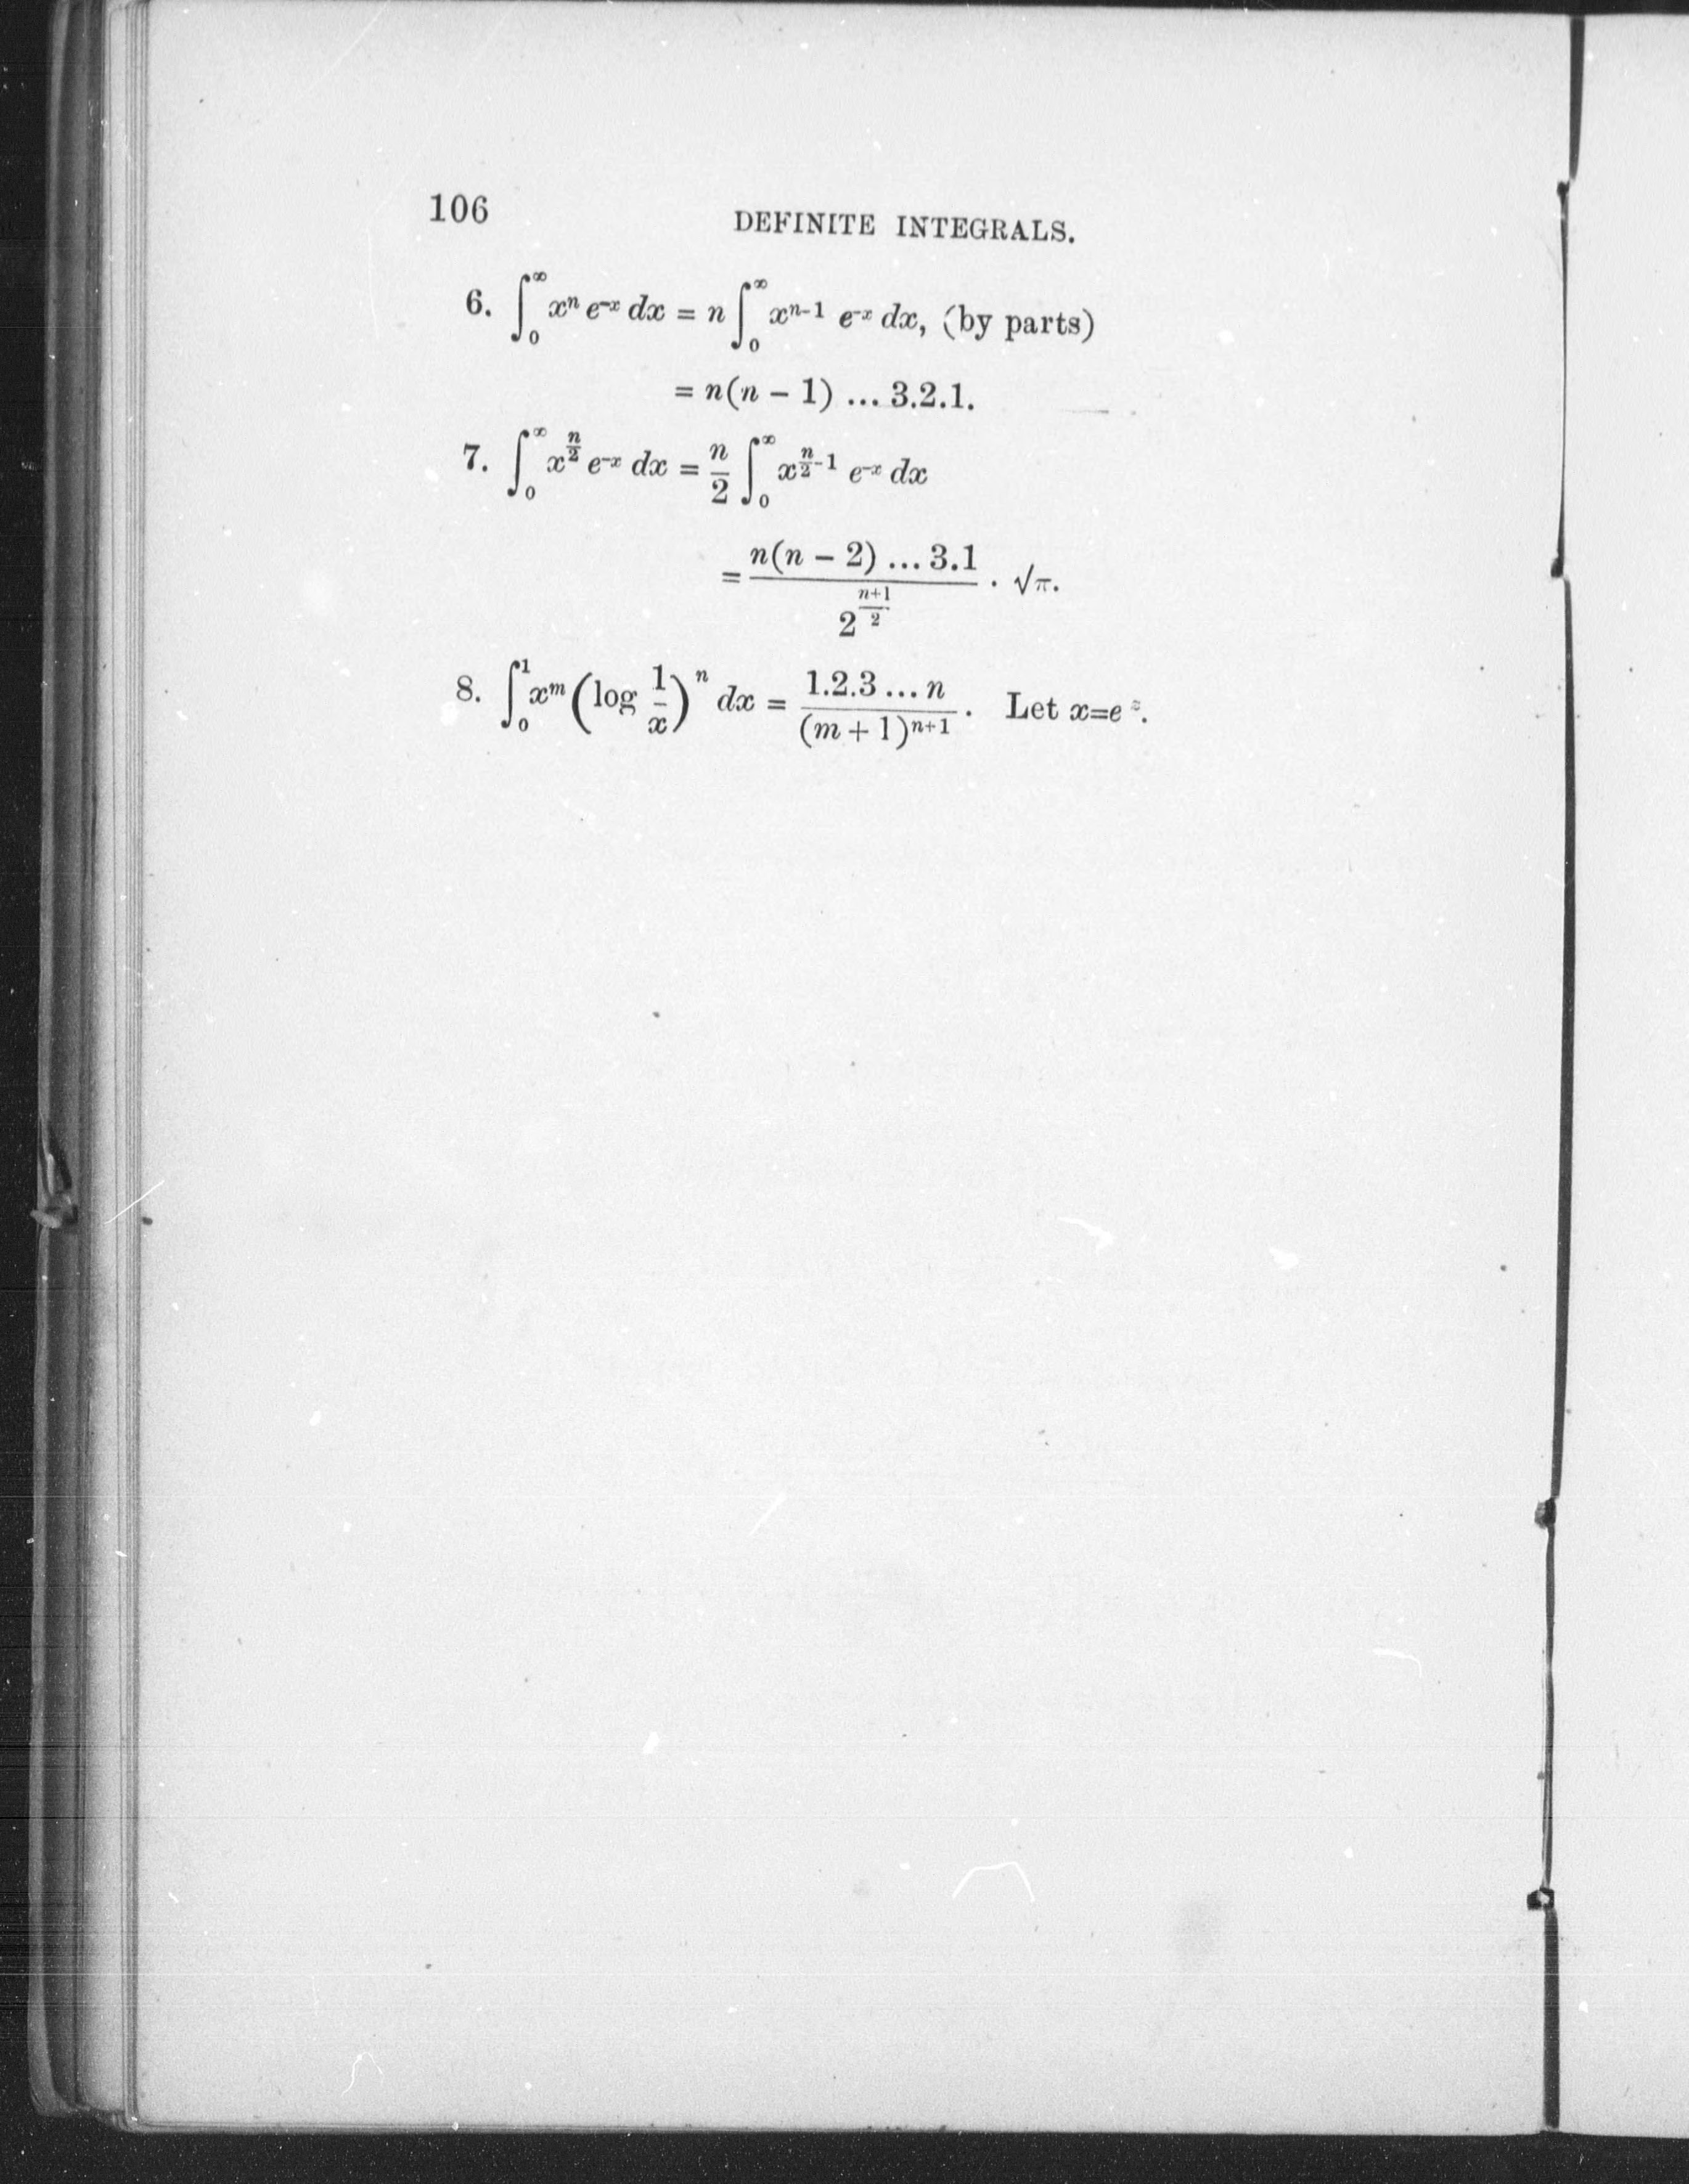 106
DEFINITE INTEGRALS.
6. ∫₀^∞ xⁿ e⁻ˣ dx = n ∫₀^∞ xⁿ⁻¹ e⁻ˣ dx, (by parts)
= n(n – 1) ... 3.2.1.
7. ∫₀^∞ x^(n/2) e⁻ˣ dx = n/2 ∫₀^∞ x^(n/2 - 1) e⁻ˣ dx
= n(n – 2) ... 3.1 / 2^((n+1)/2) . √π.
8. ∫₀¹ xᵐ (log 1/x)ⁿ dx = 1.2.3 ... n / (m + 1)ⁿ⁺¹ . Let x=e ᶻ.